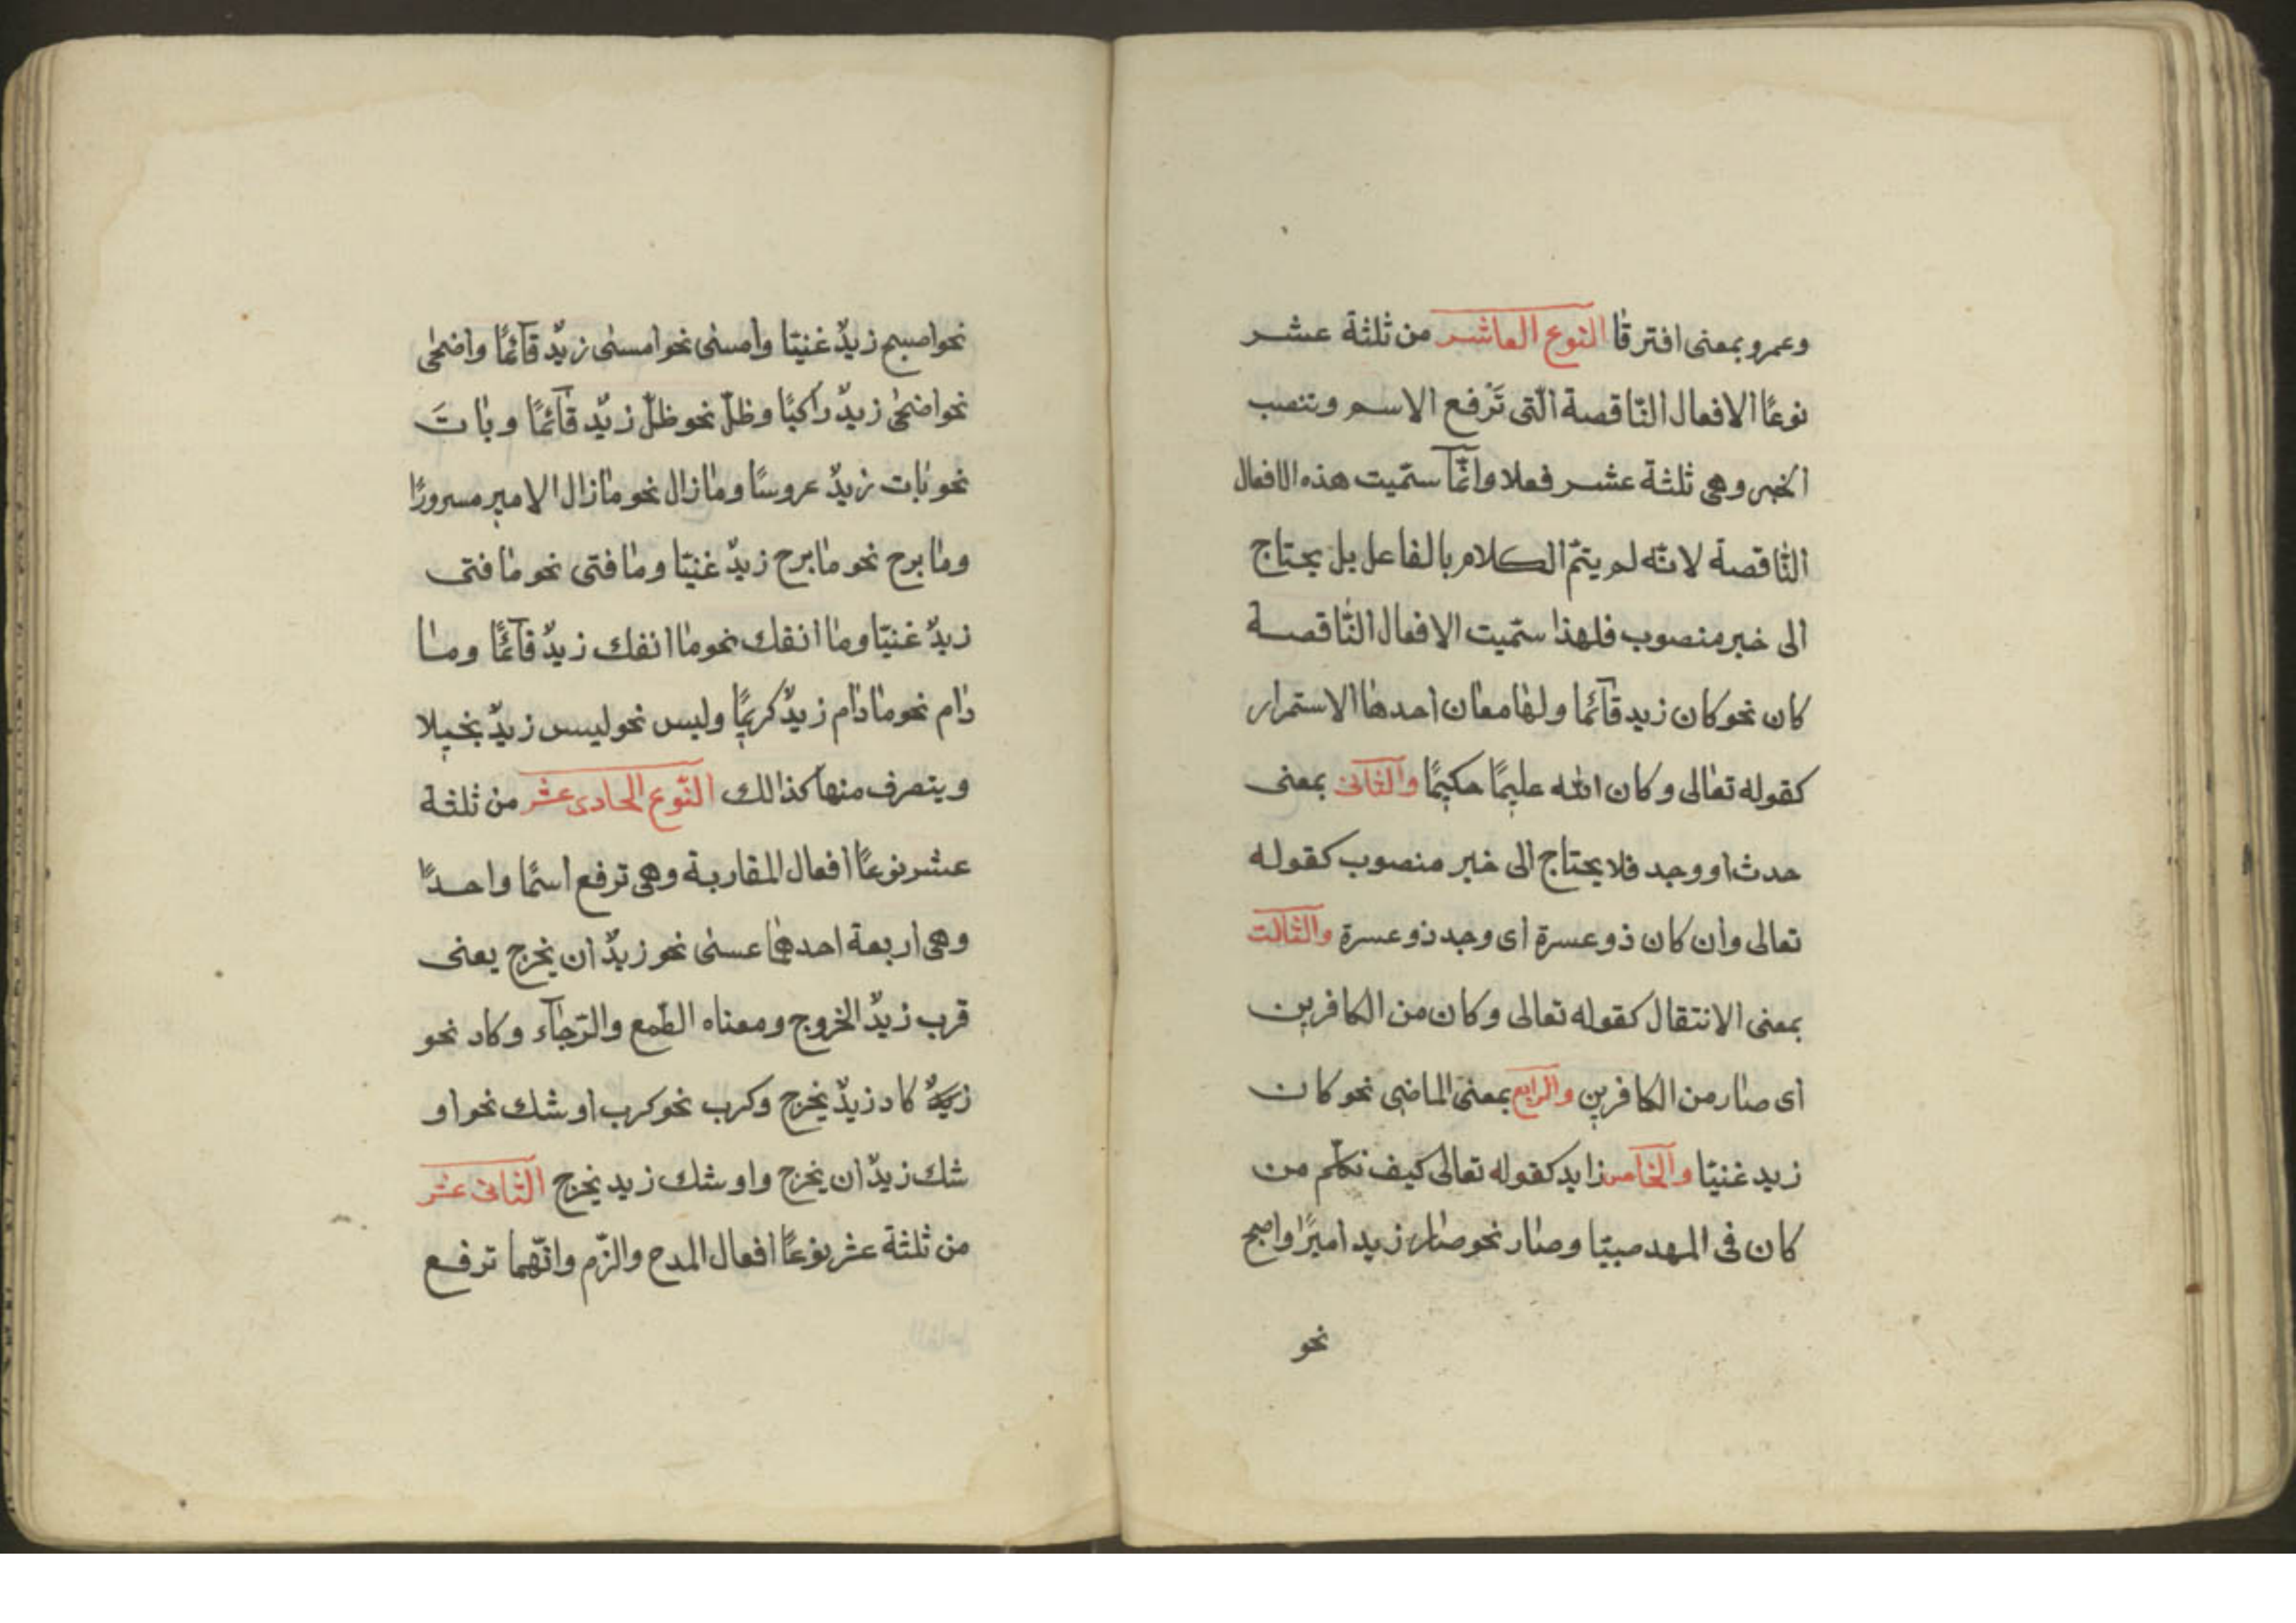 وعمرو بمعنى افترقا النوع العاشر من ثلثة عشر
نوعًا الافعال النّاقصة الّتى تَرْفع الاسم وتنصب
الخبر وهى ثلثة عشر فعلا وانّمآ سمّيت هذه الافعال
النّاقصة لانّه لم يتمّ الكلام بالفاعل بل يحتاج
الى خبر منصوب فلهذا سمّيت الافعال النّاقصة
كان نحو كان زيد قآئما ولها معان احدها الاستمرار
كقوله تعالى وكان الله عليمًا حكيمًا والثانى بمعنى
حدث او وجد فلا يحتاج الى خبر منصوب كقوله
تعالى وان كان ذو عسرة اى وجد ذو عسرة والثالت
بمعنى الانتقال كقوله تعالى وكان من الكافرين
اى صار من الكافرين والرابع بمعنى الماضى نحو كان
زيد غنيّا والخامس زايد كقوله تعالى كيف نكلّم من
كان فى المهد صبيّا وصار نحو صار زيد اميرًا واصبح
نحو
نحو اصبح زيدٌ غنيّا وامسى نحو امسى زيدٌ قآئمًا واضحى
نحو اضحى زيدٌ راكبًا وظلّ نحو ظلّ زيدٌ قآئمًا وباتَ
نحو بات زيدٌ عروسًا وما زال نحو ما زال الامير مسرورًا
وما برح نحو ما برح زيدٌ غنيّا وما فتى نحو ما فتى
زيدٌ غنيّا وما انفك نحو ما انفك زيدٌ قآئمًا وما
دام نحو ما دام زيدٌ كريمًا وليس نحو ليس زيدٌ بخيلا
ويتصرف منها كذالك النّوع الحادى عشر من ثلثة
عشر نوعًا افعال المقاربة وهى ترفع اسمًا واحدًا
وهى اربعة احدها عسى نحو زيدٌ ان يخرج يعنى
قرب زيدٌ الخروج ومعناه الطّمع والرّجآء وكاد نحو
كاد زيدٌ يخرج وكرب نحو كرب اوشك نحو او
شك زيدٌ ان يخرج واوشك زيد يخرج الثانى عشر
من ثلثة عشر نوعًا افعال المدح والزّم وانّهما ترفع